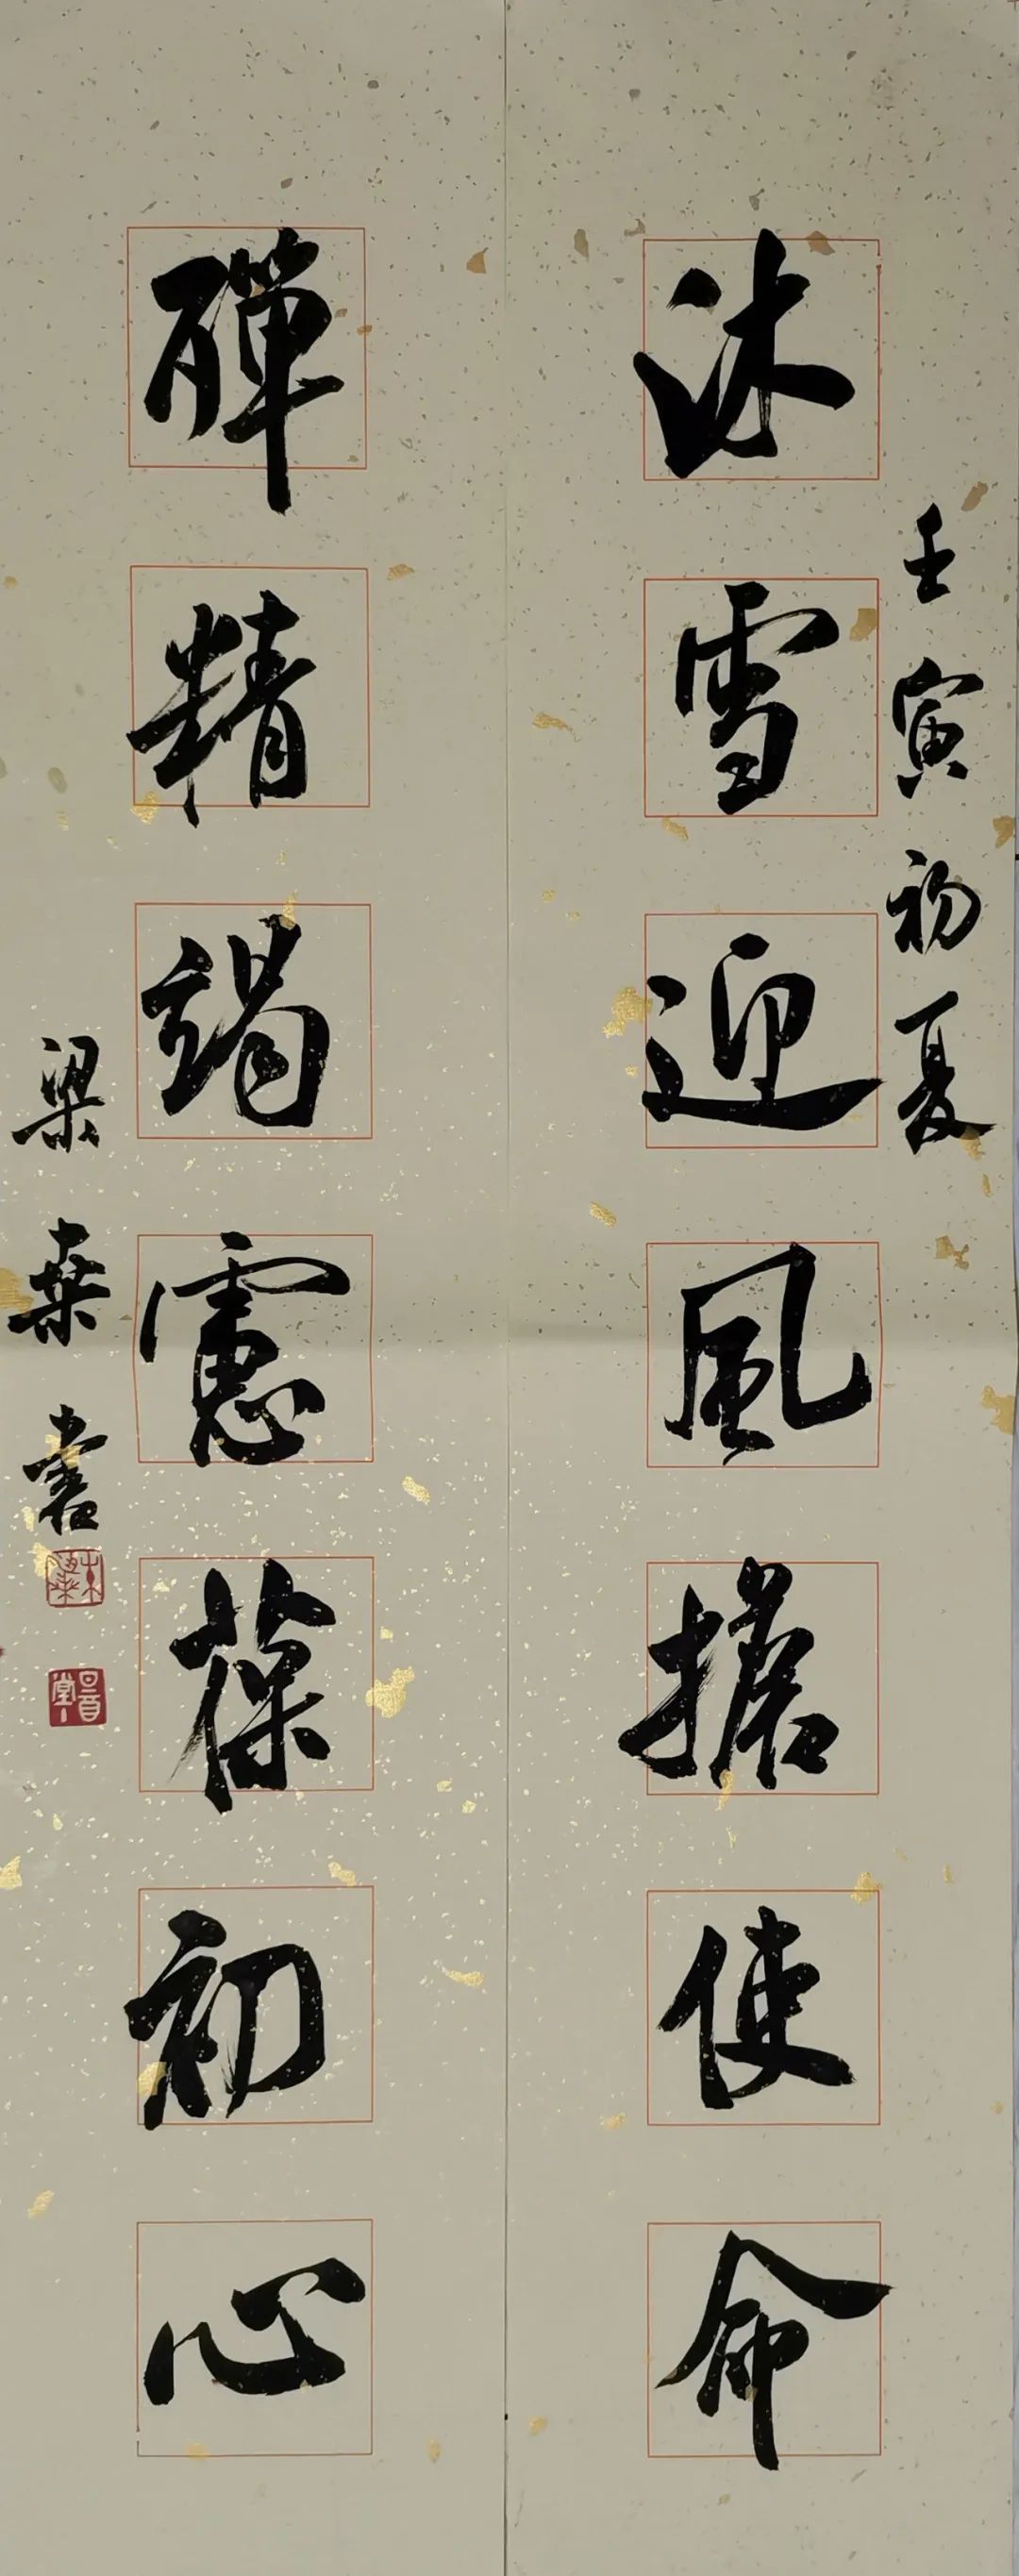 壬寅初夏
沐雪迎風擔使命
殫精竭慮葆初心
梁書